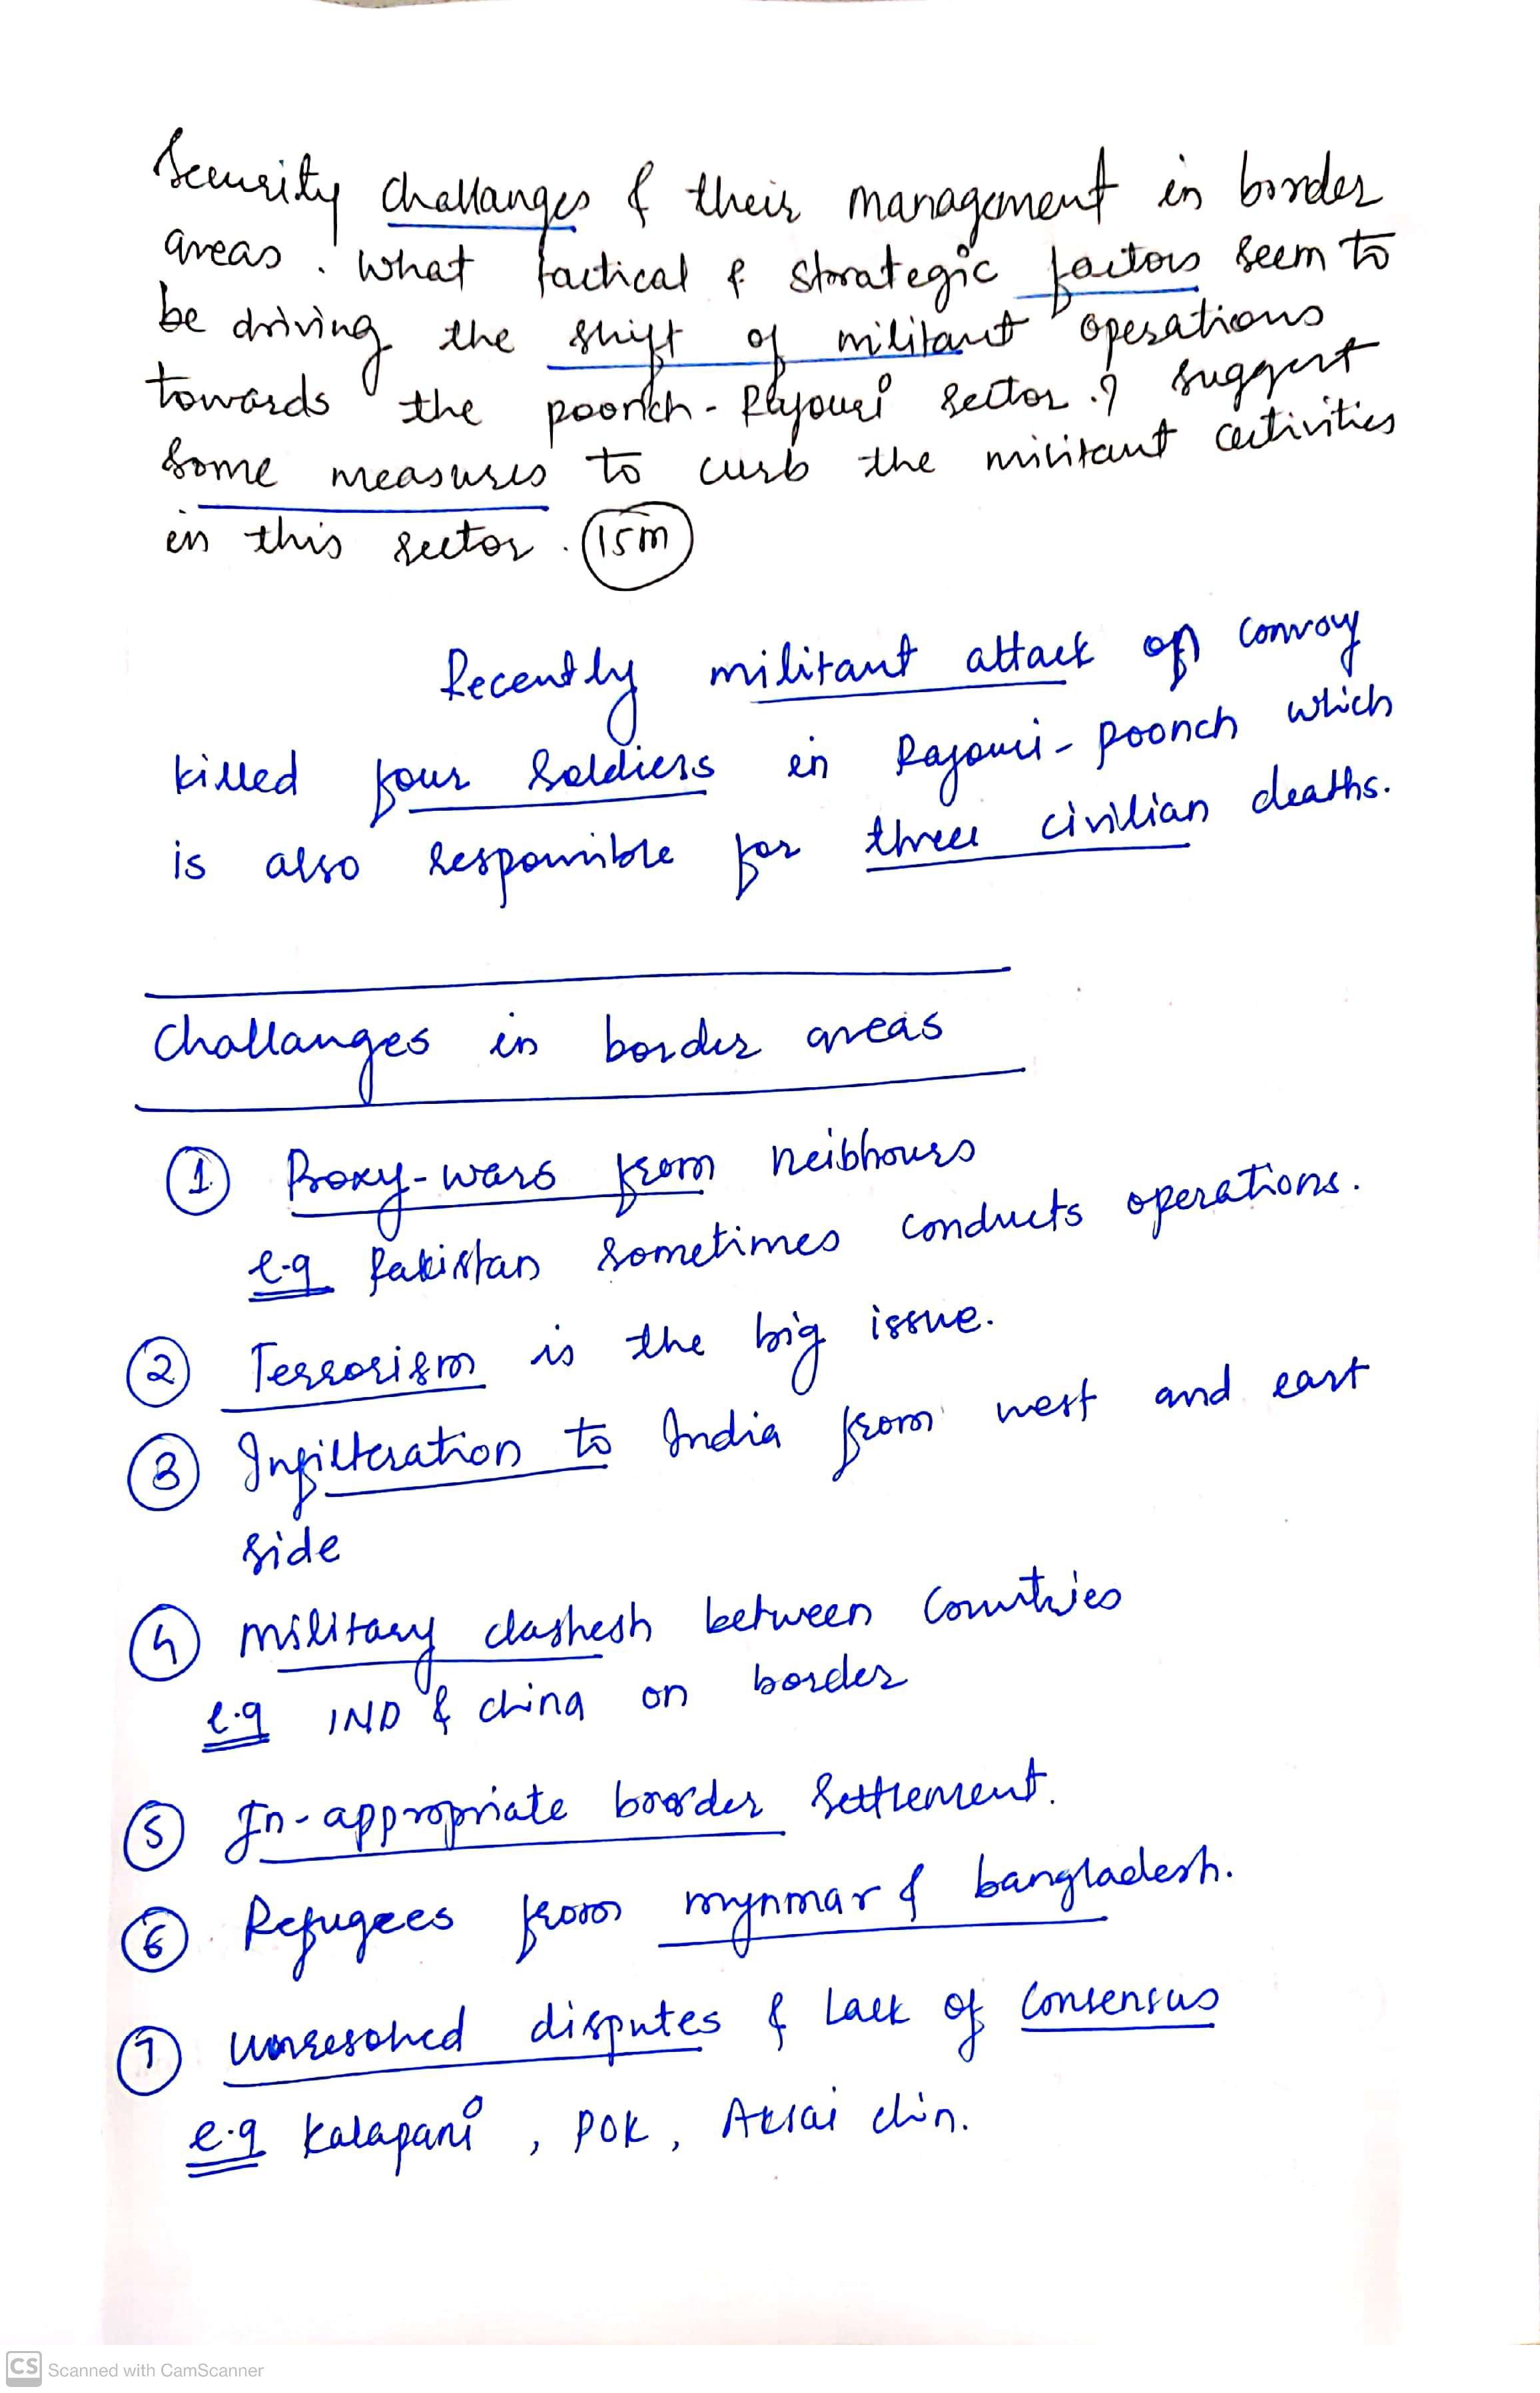 Security challanges & their management in border
areas. What tactical & strategic factors seem to
be driving the shift of militant operations
towards the poonch - Rajouri sector? suggest
some measures to curb the militant activities
in this sector. (15m)
Recently militant attack on convoy
killed four soldiers in Rajouri - poonch which
is also responsible for three civilian deaths.
Challanges in border areas
1 Proxy-wars from neibhours
e.g Pakistan sometimes conducts operations.
2 Terrorism is the big issue.
3 Infilteration to India from west and east
side
4 Military clashesh between countries
e.g IND & china on border
5 In-appropriate boorder settlement.
6 Refugees from mynmar & bangladesh.
7 unresolved disputes & Lack of consensus
e.g Kalapani, POK, Aksai chin.
CS Scanned with CamScanner